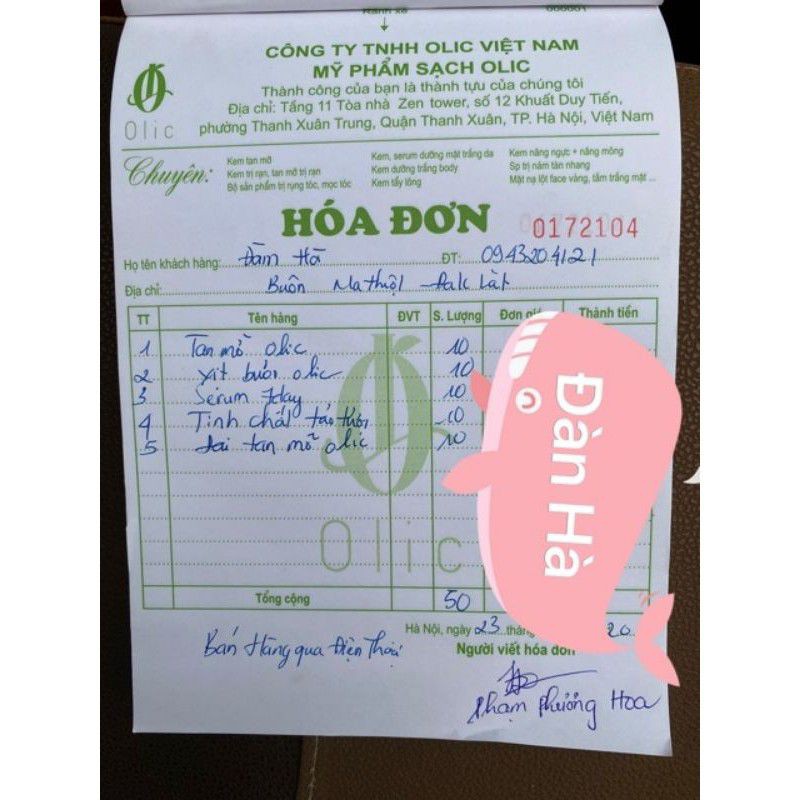 CÔNG TY TNHH OLIC VIỆT NAM
MỸ PHẨM SẠCH OLIC
Thành công của bạn là thành tựu của chúng tôi
Địa chỉ: Tầng 11 Tòa nhà Zen tower, số 12 Khuất Duy Tiến,
phường Thanh Xuân Trung, Quận Thanh Xuân, TP. Hà Nội, Việt Nam
Olic
Chuyên:
Kem tan mỡ
Kem trị rạn, tan mỡ trị rạn
Bộ sản phẩm trị rụng tóc, mọc tóc
Kem, serum dưỡng mặt trắng da
Kem dưỡng trắng body
Kem tẩy lông
Kem nâng ngực + nâng mông
Sp trị nám tàn nhang
Mặt nạ lột face vàng, tắm trắng mặt ...
HÓA ĐƠN 0172104
Họ tên khách hàng: Đàm Hà ĐT: 0943204121
Địa chỉ: Buôn Ma thuột Đak Lăk
TT Tên hàng ĐVT S. Lượng Đơn giá Thành tiền
1 Tan mỡ olic 10
2 Xịt bưởi olic 10
3 Serum 7day 10
4 Tinh chất táo tươi 10
5 đai tan mỡ olic 10
Olic
Tổng cộng 50
Hà Nội, ngày 23 tháng 20
Bán Hàng qua Điện Thoại
Người viết hóa đơn
Phạm Phương Hoa
Đàn Hà